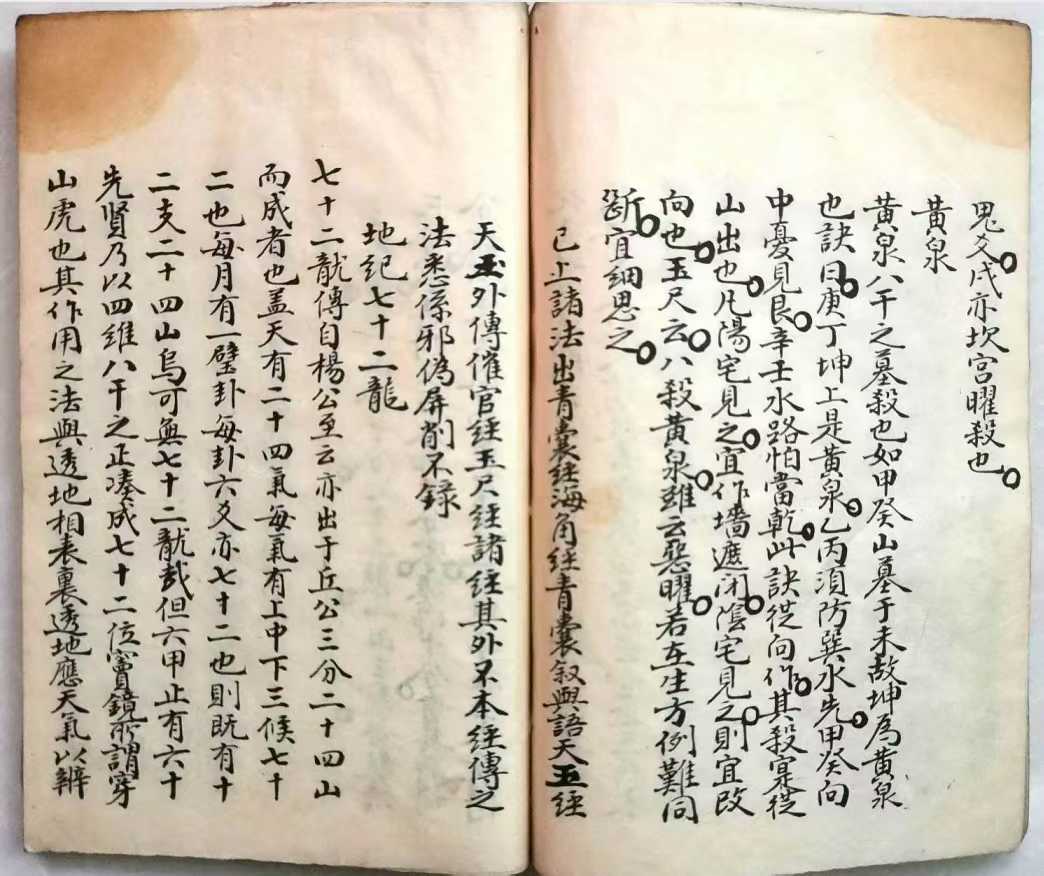 鬼爻戌亦坎宫曜殺也
黄泉
黄泉八干之墓殺也如甲癸山墓于未故坤爲黄泉
也訣曰庚丁坤上是黄泉乙丙須防巽水先甲癸向
中憂見艮辛壬水路怕當乾此訣從向作其殺寔從
山出也凡陽宅見之宜作墻遮閉陰宅見之則宜改
向也玉尺云八殺黄泉雖云惡曜若在生方例難同
断宜細思之
已上諸法出青囊经海角经青囊叙與語天玉经
天玉外傳催官经玉尺经諸经其外不本经傳之
法悉係邪偽屏削不錄
地紀七十二龍
七十二龍傳自楊公至云亦出于丘公三分二十四山
而成者也盖天有二十四氣每氣有上中下三候七十
二也每月有一璧卦每卦六爻亦七十二也則既有十
二支二十四山烏可無七十二龍哉但六甲止有六十
先賢乃以四維八干之正凑成七十二位寳鏡所謂穿
山虎也其作用之法與透地相表裏透地應天氣以辨